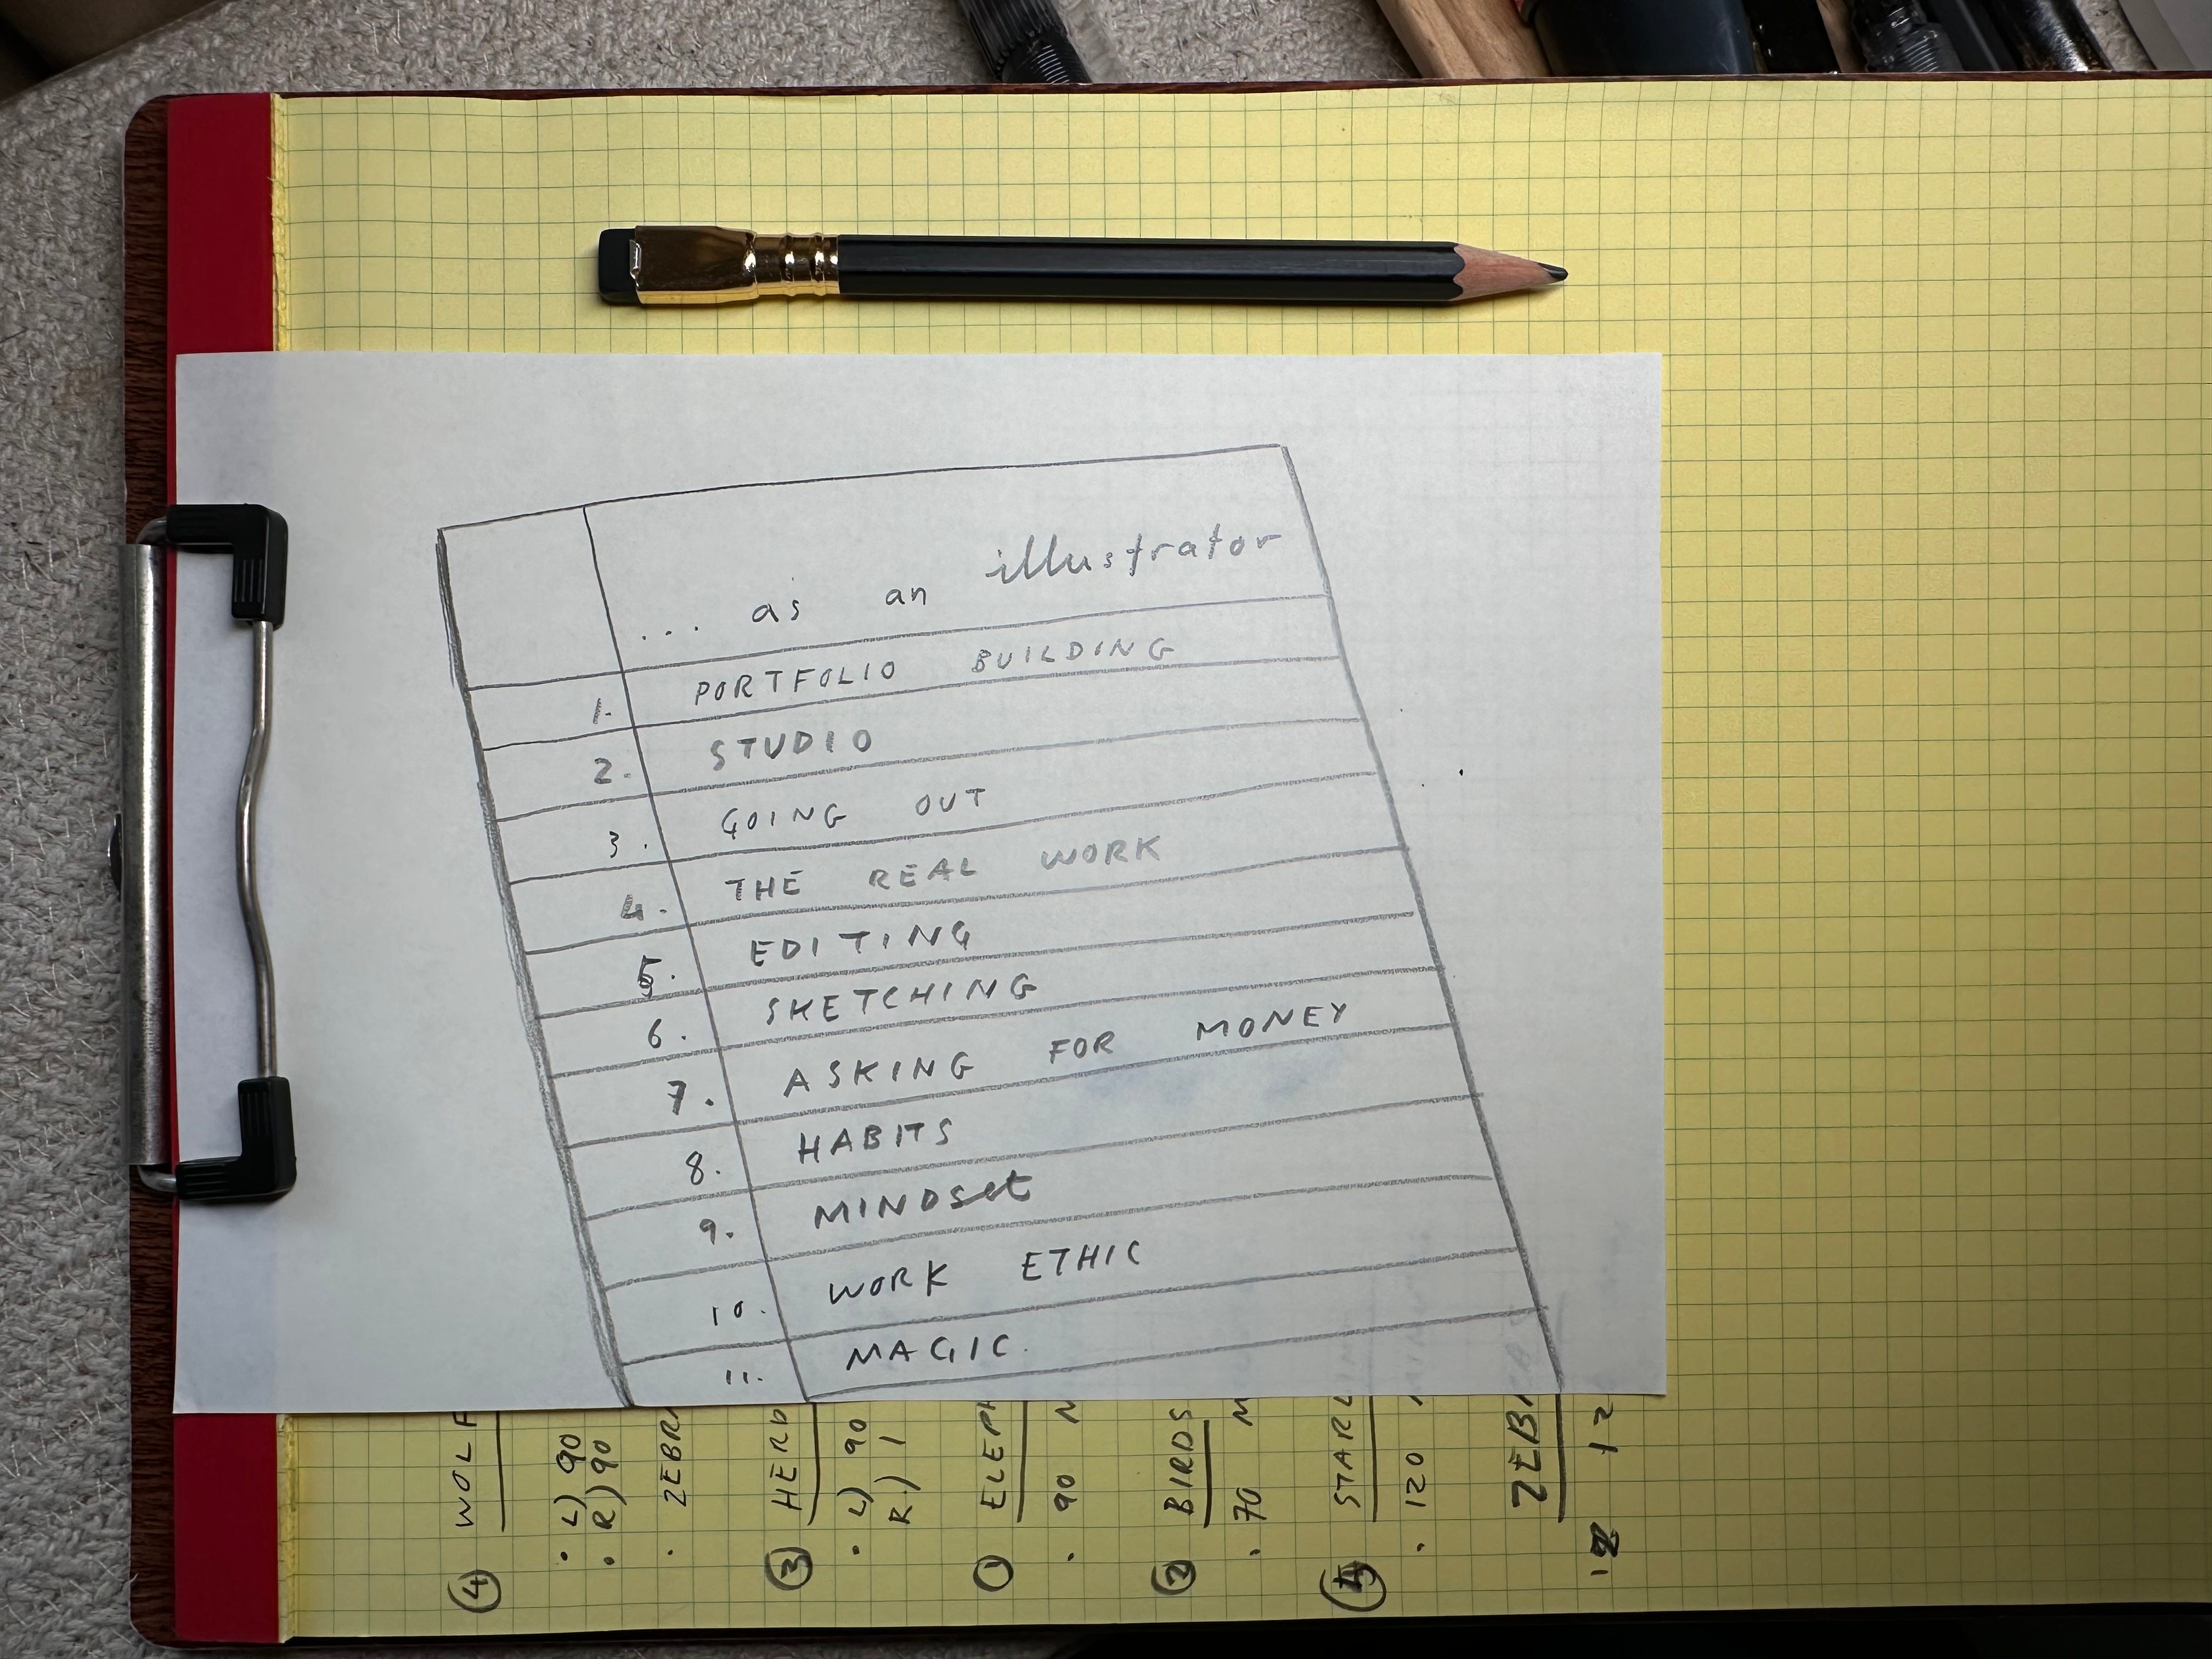 ... as an illustrator
1. PORTFOLIO BUILDING
2. STUDIO
3. GOING OUT
4. THE REAL WORK
5. EDITING
6. SKETCHING
7. ASKING FOR MONEY
8. HABITS
9. MINDset
10. WORK ETHIC
11. MAGIC.
4 WOLF
• L) 90
• R) 90
• ZEBR
3 HERD
• L) 90
R.) 1
1 ELEPH
• 90
2 BIRDS
• 70
STARL
• 120
ZEB